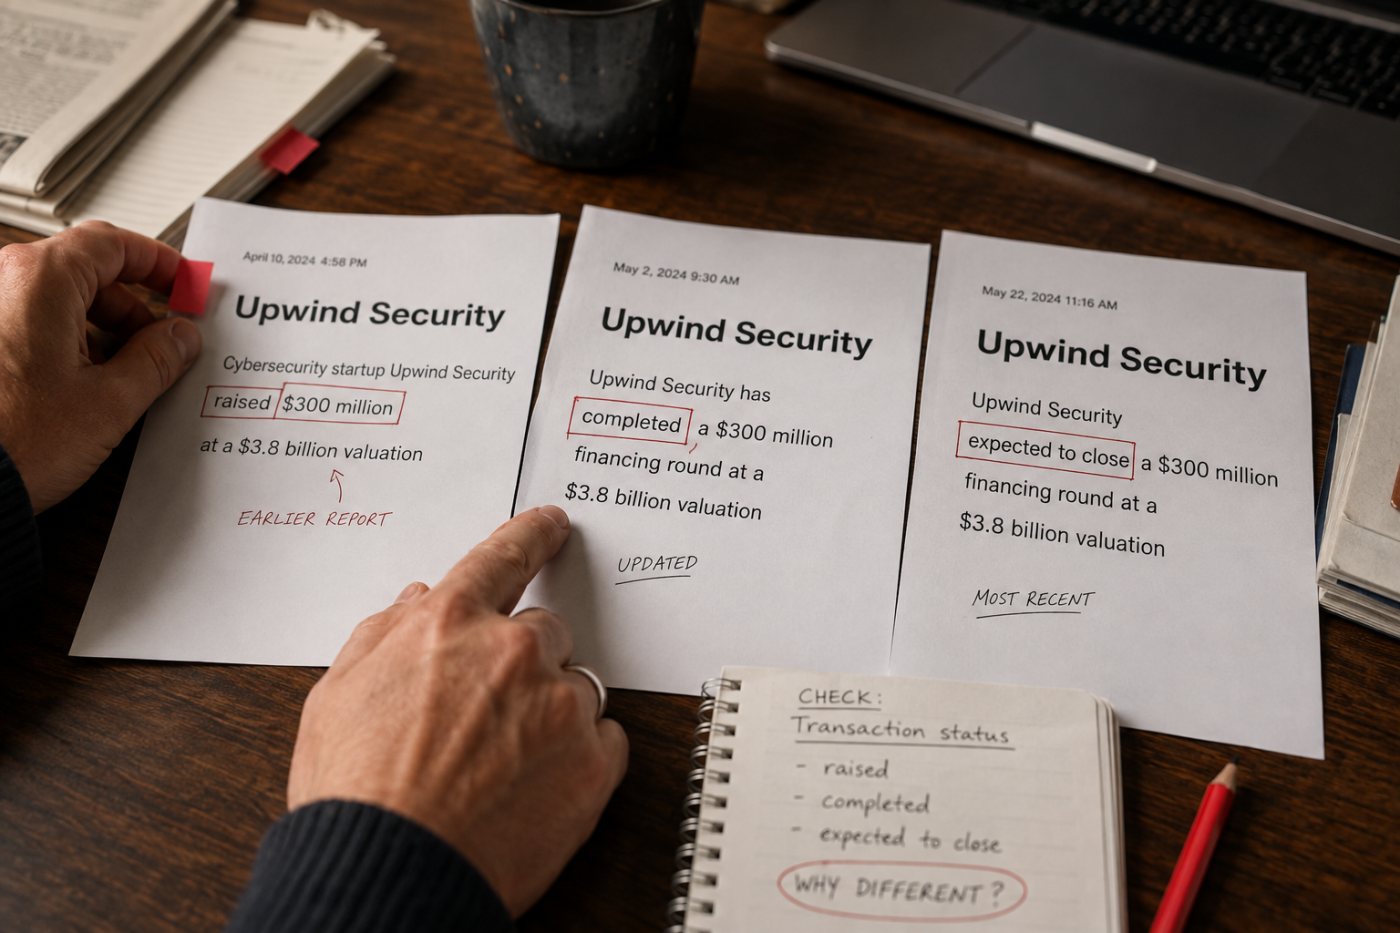 April 10, 2024 4:58 PM
Upwind Security
Cybersecurity startup Upwind Security
raised $300 million
at a $3.8 billion valuation
EARLIER REPORT
May 2, 2024 9:30 AM
Upwind Security
Upwind Security has
completed a $300 million
financing round at a
$3.8 billion valuation
UPDATED
May 22, 2024 11:16 AM
Upwind Security
Upwind Security
expected to close a $300 million
financing round at a
$3.8 billion valuation
MOST RECENT
CHECK:
Transaction status
- raised
- completed
- expected to close
WHY DIFFERENT?